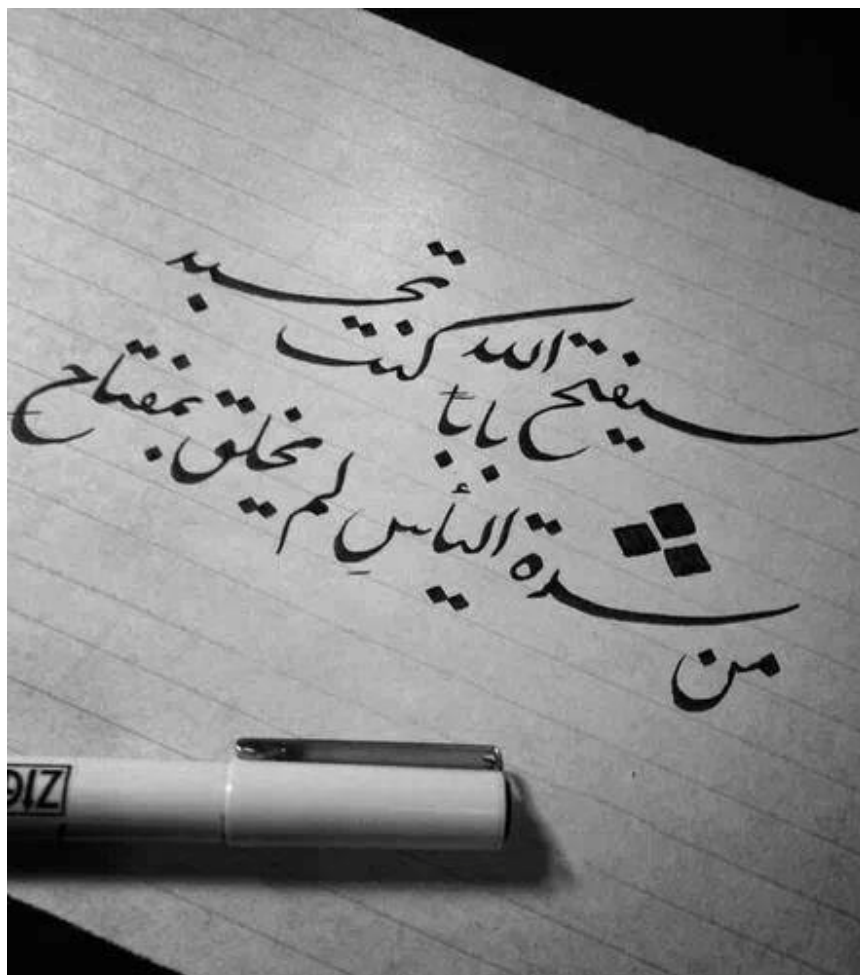 سيفتح الله بابًا كنت تحسبه
من شدة اليأسِ لم يخلق بمفتاح
ZIG